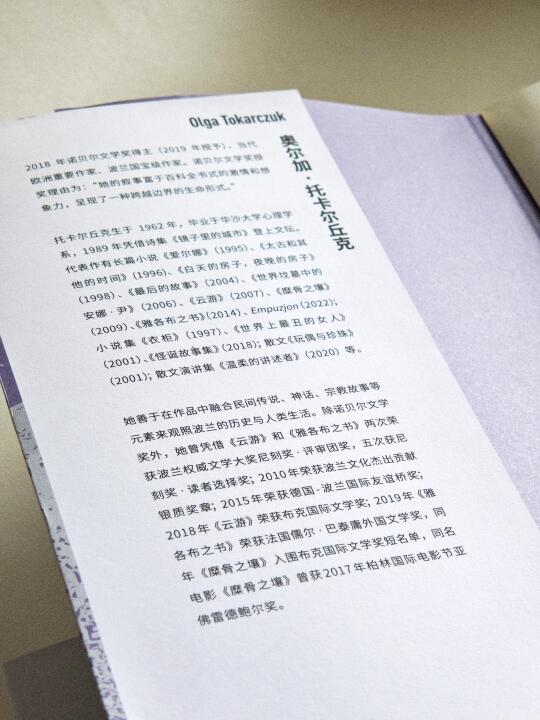 Olga Tokarczuk
奥尔加·托卡尔丘克
2018 年诺贝尔文学奖得主（2019 年授予），当代
欧洲重要作家、波兰国宝级作家。诺贝尔文学奖授
奖理由为：“她的叙事富于百科全书式的激情和想
象力，呈现了一种跨越边界的生命形式。”
托卡尔丘克生于 1962 年，毕业于华沙大学心理学
系，1989 年凭借诗集《镜子里的城市》登上文坛。
代表作有长篇小说《爱尔娜》（1995）、《太古和其
他的时间》（1996）、《白天的房子，夜晚的房子》
（1998）、《最后的故事》（2004）、《世界坟墓中的
安娜·尹》（2006）、《云游》（2007）、《糜骨之壤》
（2009）、《雅各布之书》（2014）、Empuzjon（2022）；
小说集《衣柜》（1997）、《世界上最丑的女人》
（2001）、《怪诞故事集》（2018）；散文《玩偶与珍珠》
（2001）；散文演讲集《温柔的讲述者》（2020）等。
她善于在作品中融合民间传说、神话、宗教故事等
元素来观照波兰的历史与人类生活。除诺贝尔文学
奖外，她曾凭借《云游》和《雅各布之书》两次荣
获波兰权威文学大奖尼刻奖·评审团奖，五次获尼
刻奖·读者选择奖；2010年荣获波兰文化杰出贡献
银质奖章；2015年荣获德国-波兰国际友谊桥奖；
2018年《云游》荣获布克国际文学奖；2019年《雅
各布之书》荣获法国儒尔·巴泰庸外国文学奖，同
年《糜骨之壤》入围布克国际文学奖短名单，同名
电影《糜骨之壤》曾获2017年柏林国际电影节亚
佛雷德鲍尔奖。